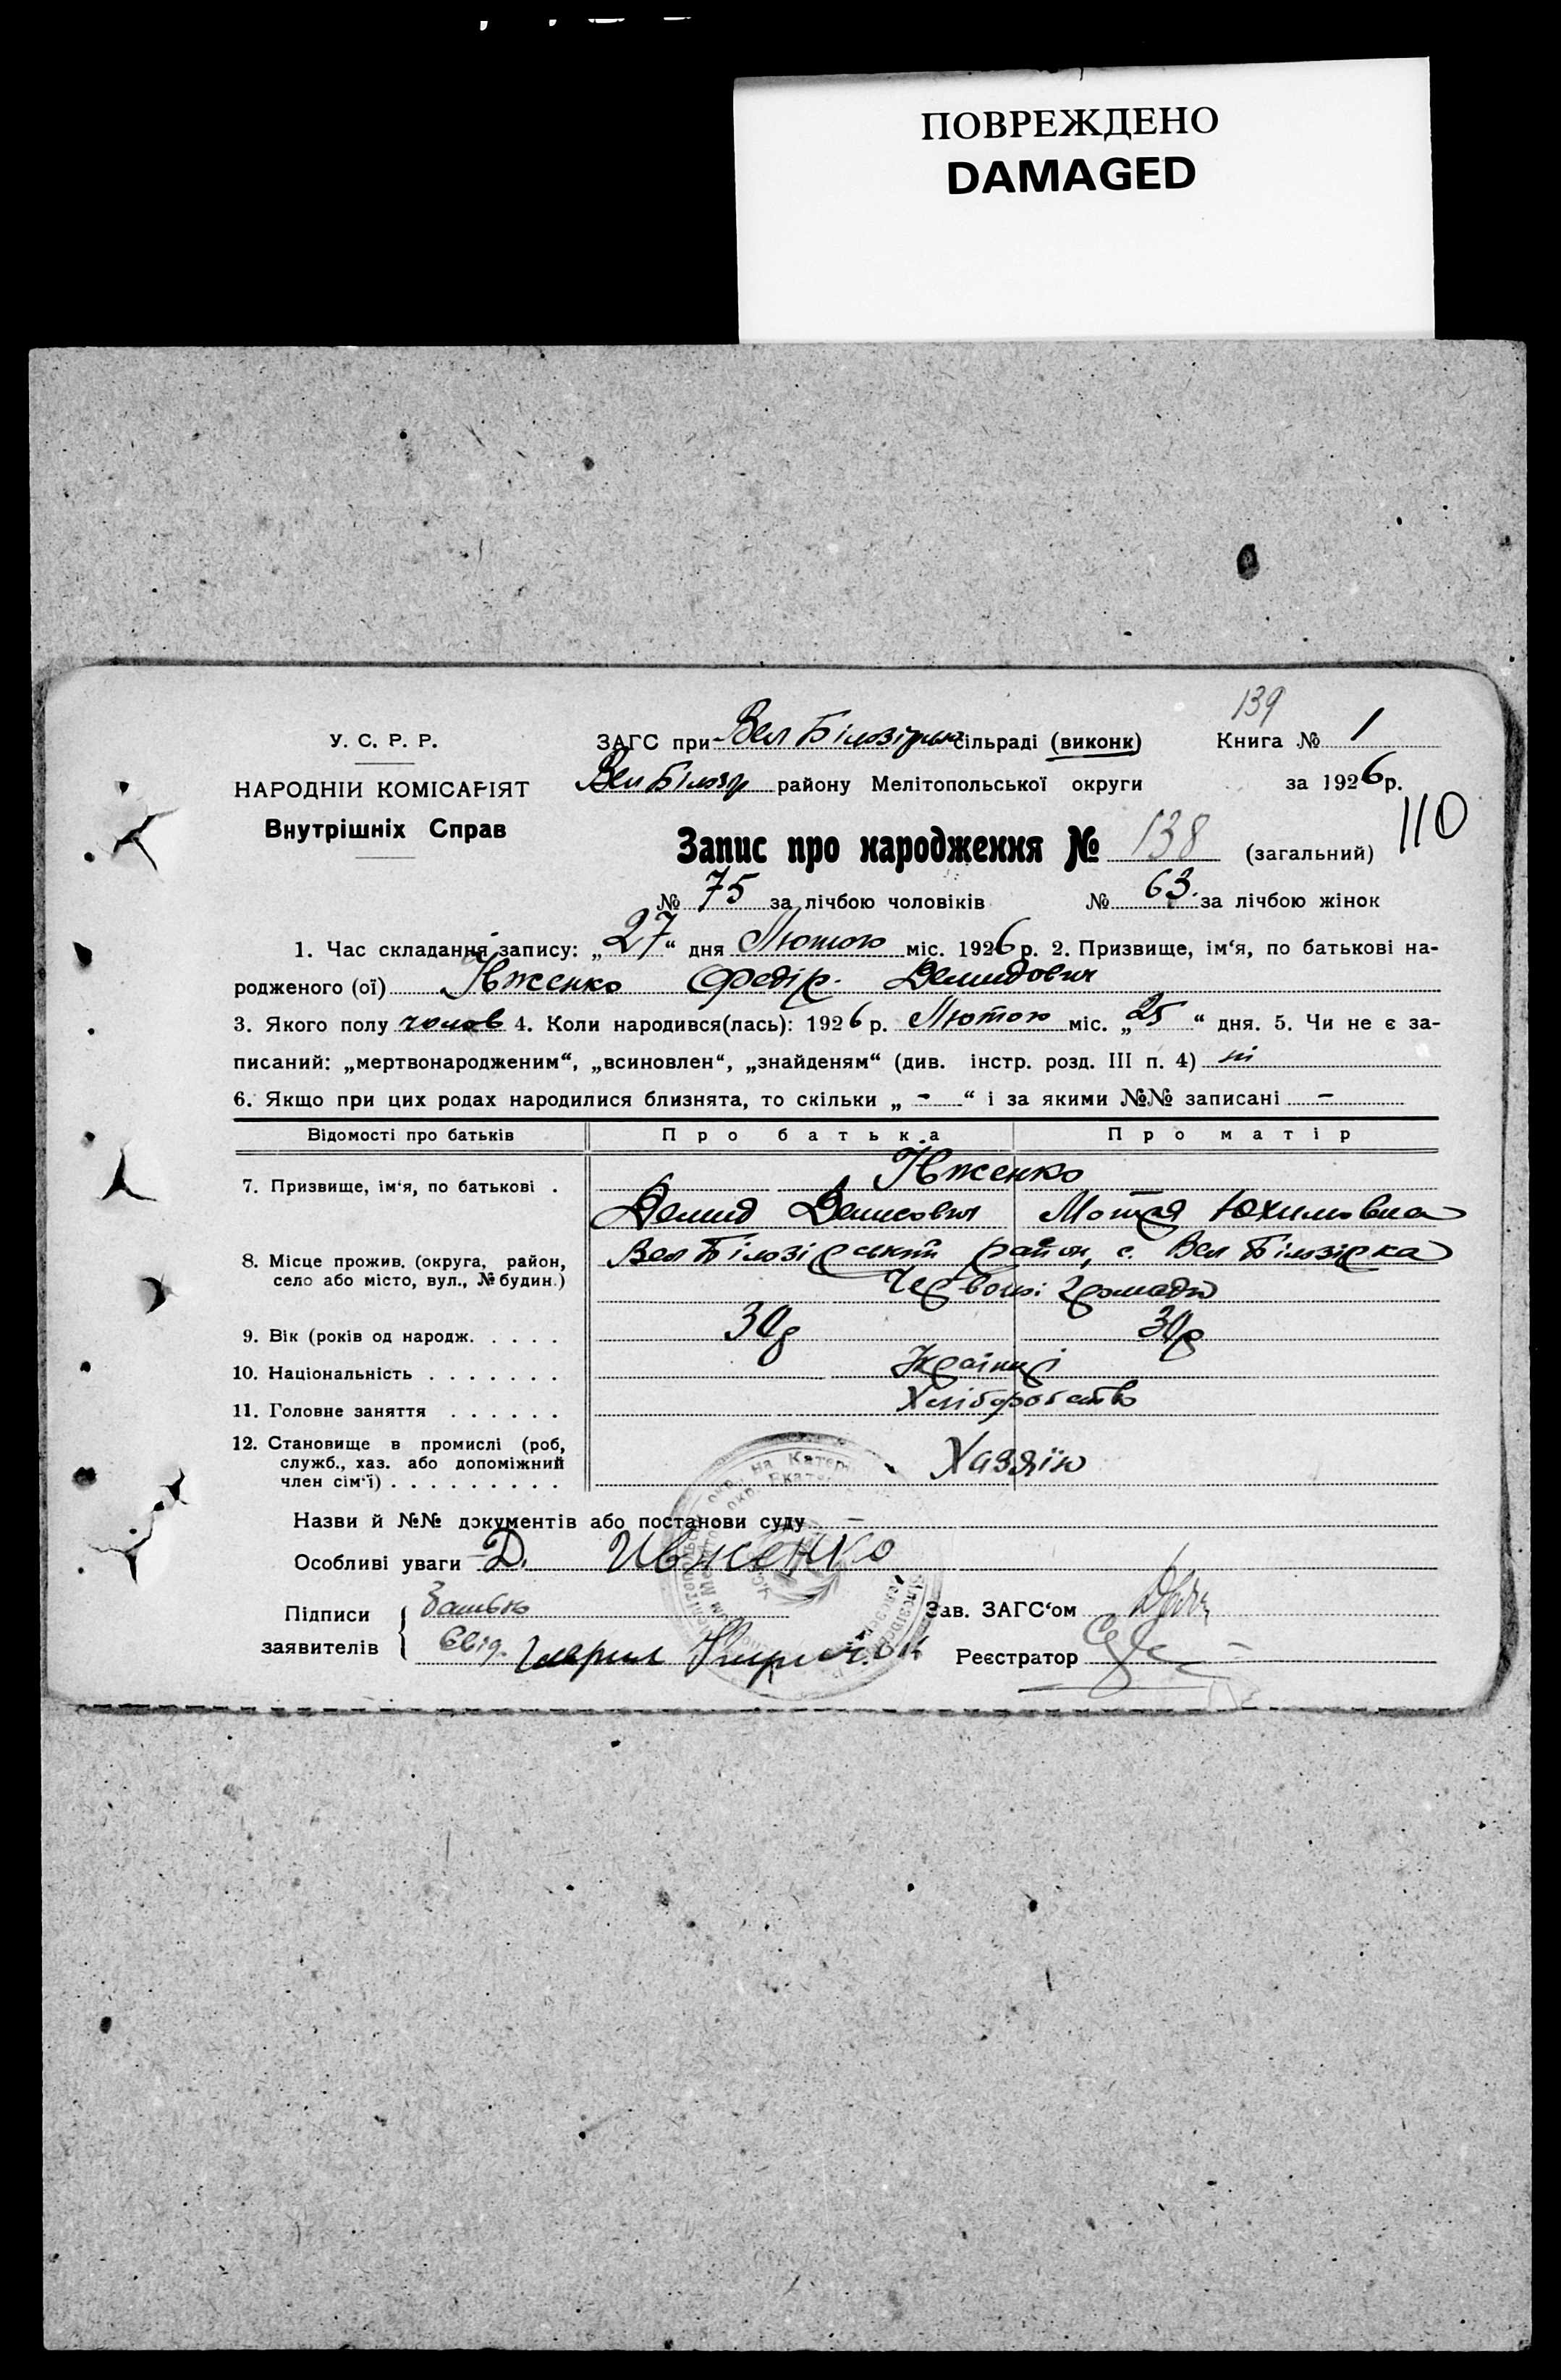 ПОВРЕЖДЕНО
DAMAGED
139
У. С. Р. Р.
НАРОДНІЙ КОМІСАРІЯТ
Внутрішніх Справ
ЗАГС при Вел Білозірськ сільраді (виконк) Книга № 1
Вел Білозір району Мелітопольської округи за 1926 р.
110
Запис про народження № 138 (загальний)
№ 75 за лічбою чоловіків № 63. за лічбою жінок
1. Час складання запису: „27“ дня Лютого міс. 1926 р. 2. Призвище, ім‘я, по батькові на-
родженого (ої) Івженко Федір Демидович
3. Якого полу чолов 4. Коли народився(лась): 1926 р. Лютого міс. „25“ дня. 5. Чи не є за-
писаний: „мертвонародженим“, „всиновлен“, „знайденям“ (див. інстр. розд. III п. 4) ні
6. Якщо при цих родах народилися близнята, то скільки „ - “ і за якими №№ записані -
Відомості про батьків Про батька Про матір
7. Призвище, ім‘я, по батькові . Івженко
Демид Денисович Мотря Юхимовна
8. Місце прожив. (округа, район, село або місто, вул., № будин.) Вел Білозірський район, с. Вел Білозірка
Червоної громади
9. Вік (років од народж. . . . . 30р 30р
10. Національність . . . . . . . Українці
11. Головне заняття . . . . . . Хліборобство
12. Становище в промислі (роб,
служб., хаз. або допоміжний
член сім‘ї) . . . . . . . . . Хазяїн
Назви й №№ документів або постанови суду —
Особливі уваги Д. Ивженко
Підписи заявителів { Батько
Свід. Гаврил
Зав. ЗАГС‘ом
Реєстратор